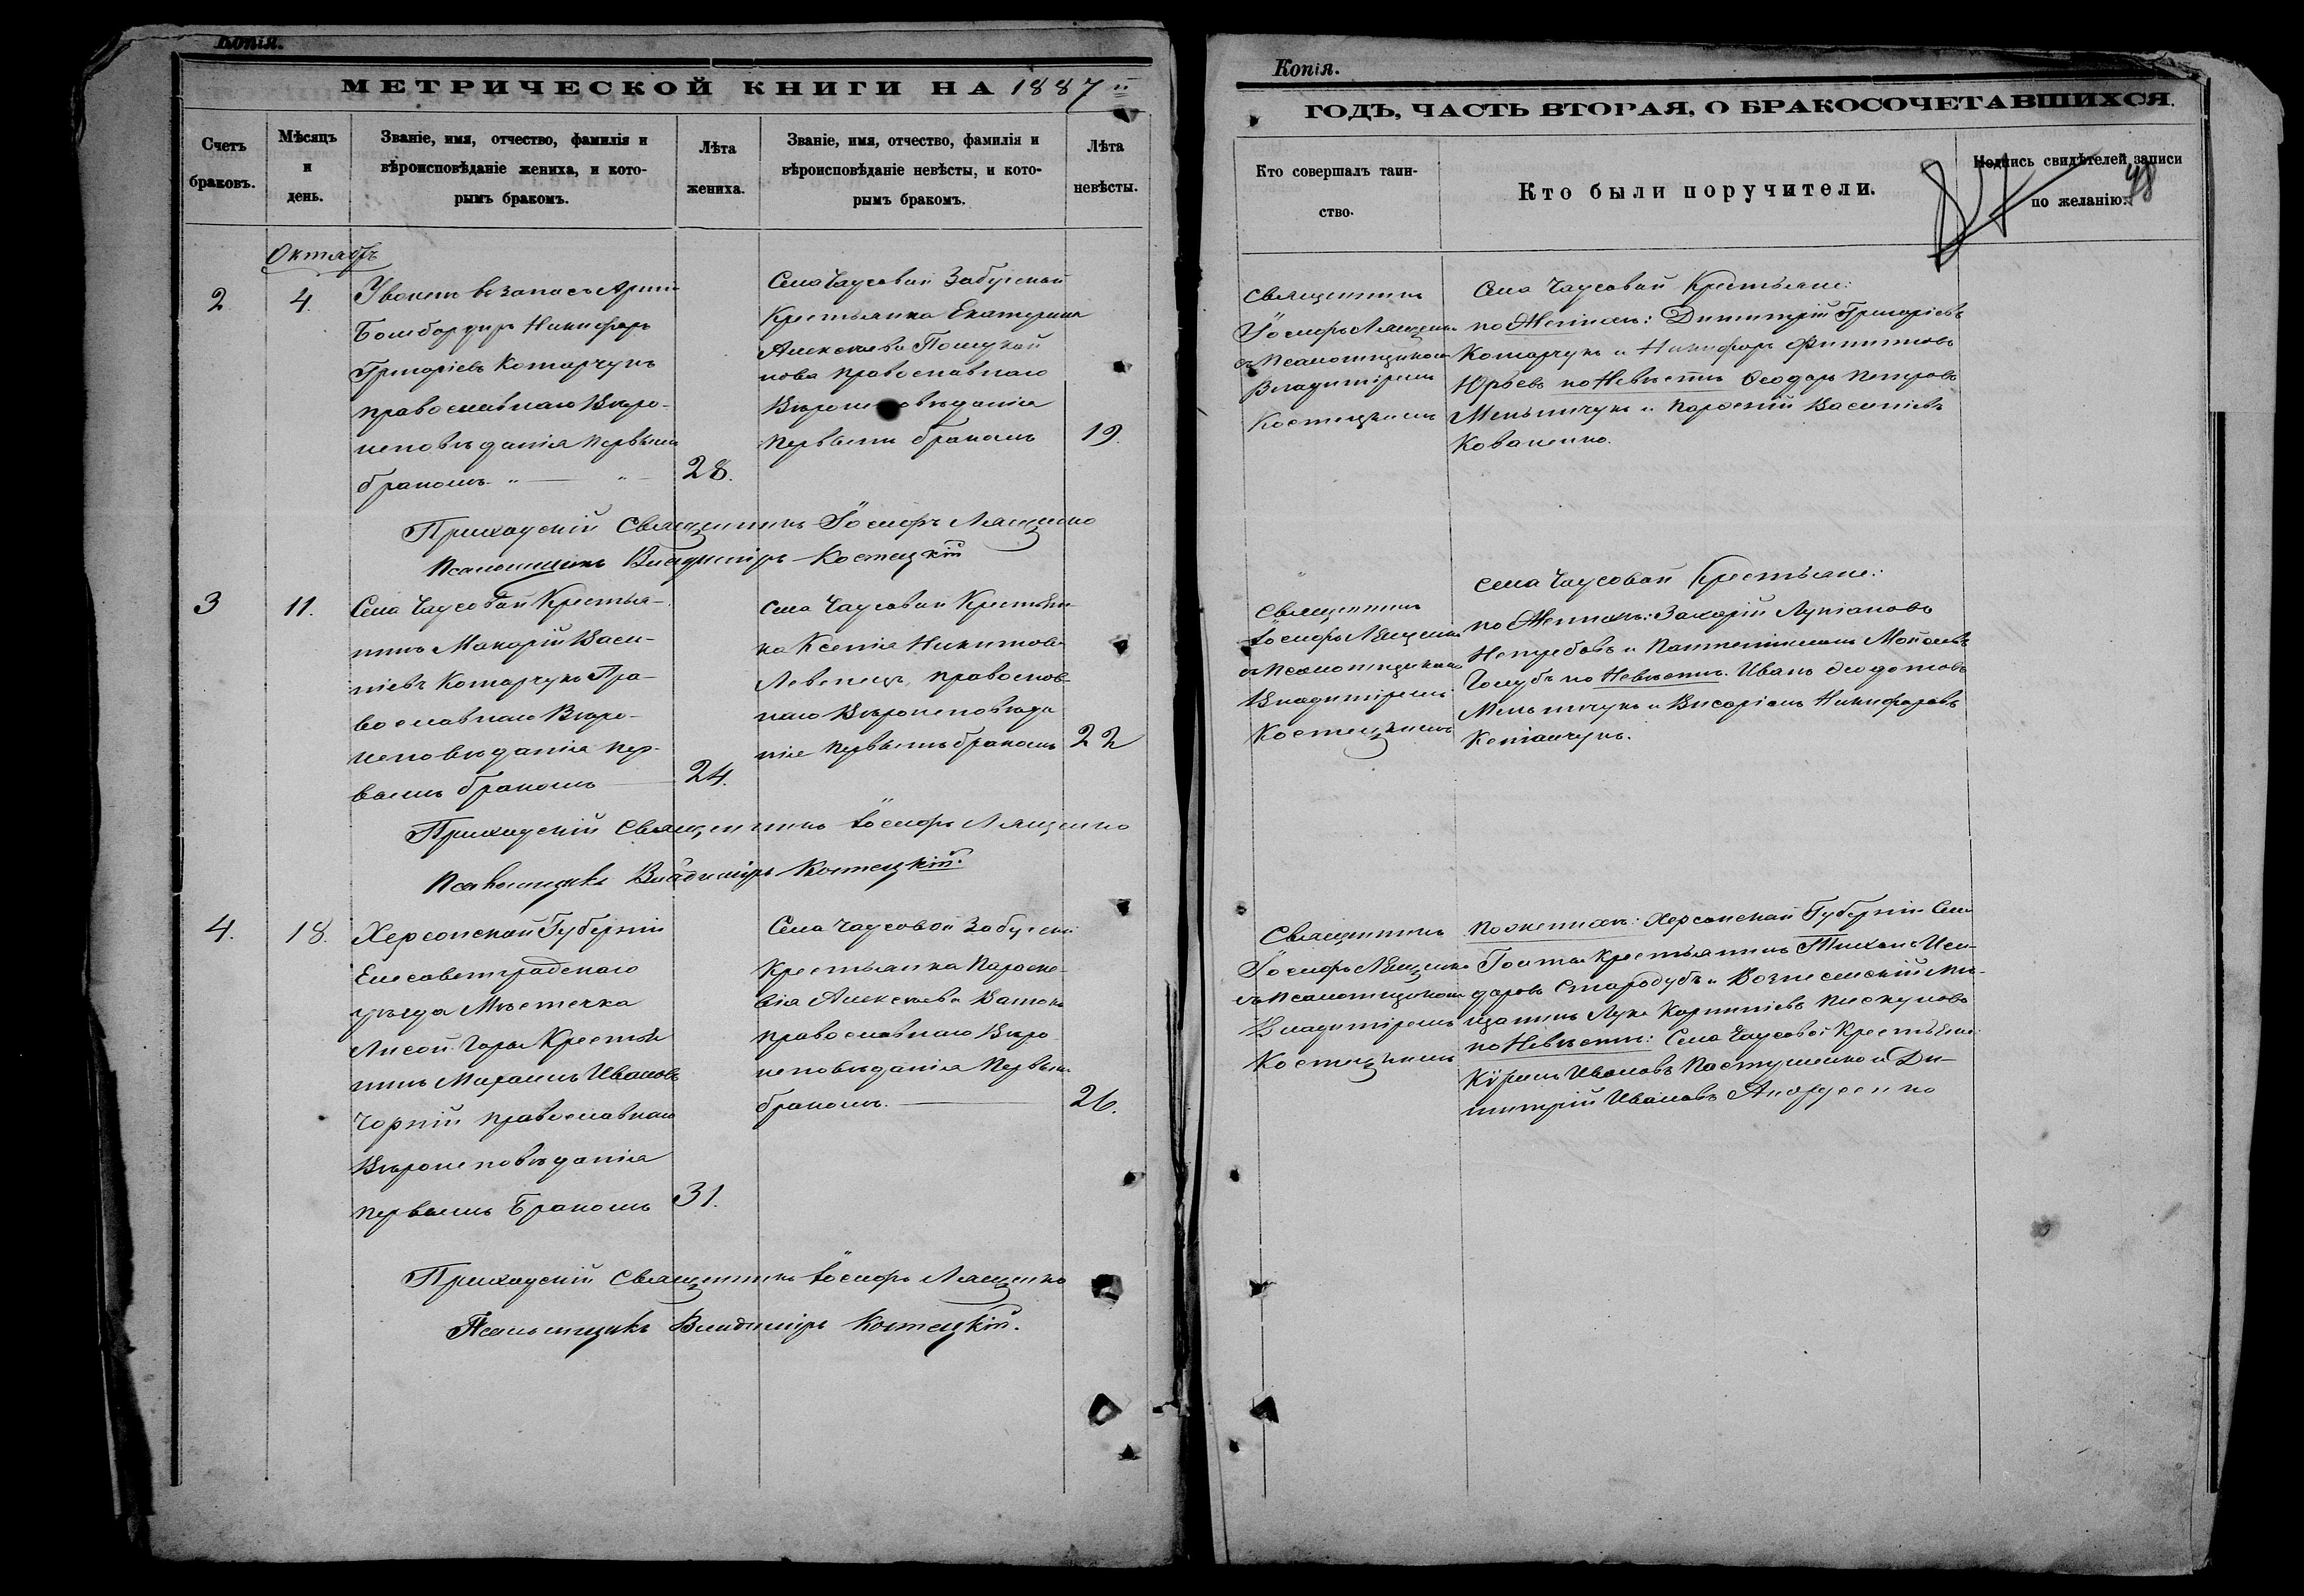 Копія.
МЕТРИЧЕСКОЙ КНИГИ НА 1887 й
Счетъ браковъ.
Мѣсяцъ и день.
Званіе, имя, отчество, фамилія и
вѣроисповѣданіе жениха, и кото-
рымъ бракомъ.
Лѣта жениха.
Званіе, имя, отчество, фамилія и
вѣроисповѣданіе невѣсты, и кото-
рымъ бракомъ.
Лѣта невѣсты.
Октябрь
2
4.
Уволен. въ запасъ Арміи
Бомбардиръ Никифоръ
Григоріевъ Котарчукъ
православнаго Вѣро-
исповѣданія первымъ
бракомъ
28.
Села Чаусовой Забугской
Крестьянка Екатерина
Алексѣева
православнаго
Вѣроисповѣданія
первымъ бракомъ
19.
Приходскій Священникъ Іосифъ Лященко
Псаломщикъ Владиміръ Костецкій
3
11.
Села Чаусовой Крестья-
нинъ Макарій Васи-
ліевъ Котарчукъ Пра-
вославнаго Вѣро-
исповѣданія пер-
вымъ бракомъ
24.
Села Чаусовой Крестьян-
ка Ксенія Никитова
Левенецъ, православ-
наго Вѣроисповѣда
нія первымъ бракомъ
22
Приходскій Священникъ Іосифъ Лященко
Псаломщикъ Владиміръ Костецкій.
4.
18.
Херсонской Губерніи
Елисаветградскаго
уѣзда Мѣстечка
Лысой Горы Крестья
нинъ Михаилъ Ивановъ
Чорній православнаго
Вѣроисповѣданія
первымъ Бракомъ
31.
Села Чаусовой Забугской
Крестьянка Параске-
вія Алексѣева
православнаго Вѣро
исповѣданія Первымъ
бракомъ.
26.
Приходскій Священникъ Іосифъ Лященко
Псаломщикъ Владиміръ Костецкій.
Копія.
ГОДЪ, ЧАСТЬ ВТОРАЯ, О БРАКОСОЧЕТАВШИХСЯ.
Кто совершалъ таин-
ство.
Кто были поручители.
Подпись свидѣтелей записи
по желанію.
48
Священникъ
Іосифъ Лященко
съ Псаломщикомъ
Владиміромъ
Костецкимъ
Села Чаусовой Крестьяне:
по Женихѣ: Димитрій Григоріевъ
Котарчукъ и Никифоръ Филиповъ
Юрьевъ по Невѣстѣ Ѳеодоръ Петровъ
Мельничукъ и Василіевъ
Коваленко.
Священникъ
Іосифъ Лященко
съ Псаломщикомъ
Владиміромъ
Костецкимъ
Села Чаусовой Крестьяне:
по Женихѣ: Захарій Лукіановъ
и Пантелимонъ
Голубъ по Невѣстѣ. Иванъ Ѳеодотовъ
Мельничукъ и Никифоровъ
Священникъ
Іосифъ Лященко
съ Псаломщикомъ
Владиміромъ
Костецкимъ
По женихѣ: Херсонской Губерніи Села
Крестьянинъ Тихонъ Иси-
доровъ Стародубъ и Вознесенскій Мѣ-
щанинъ Лука Пискуновъ
по Невѣстѣ: Села Чаусовой Крестьяне
Ивановъ Пастушенко и Ди-
митрій Ивановъ Андрусенко